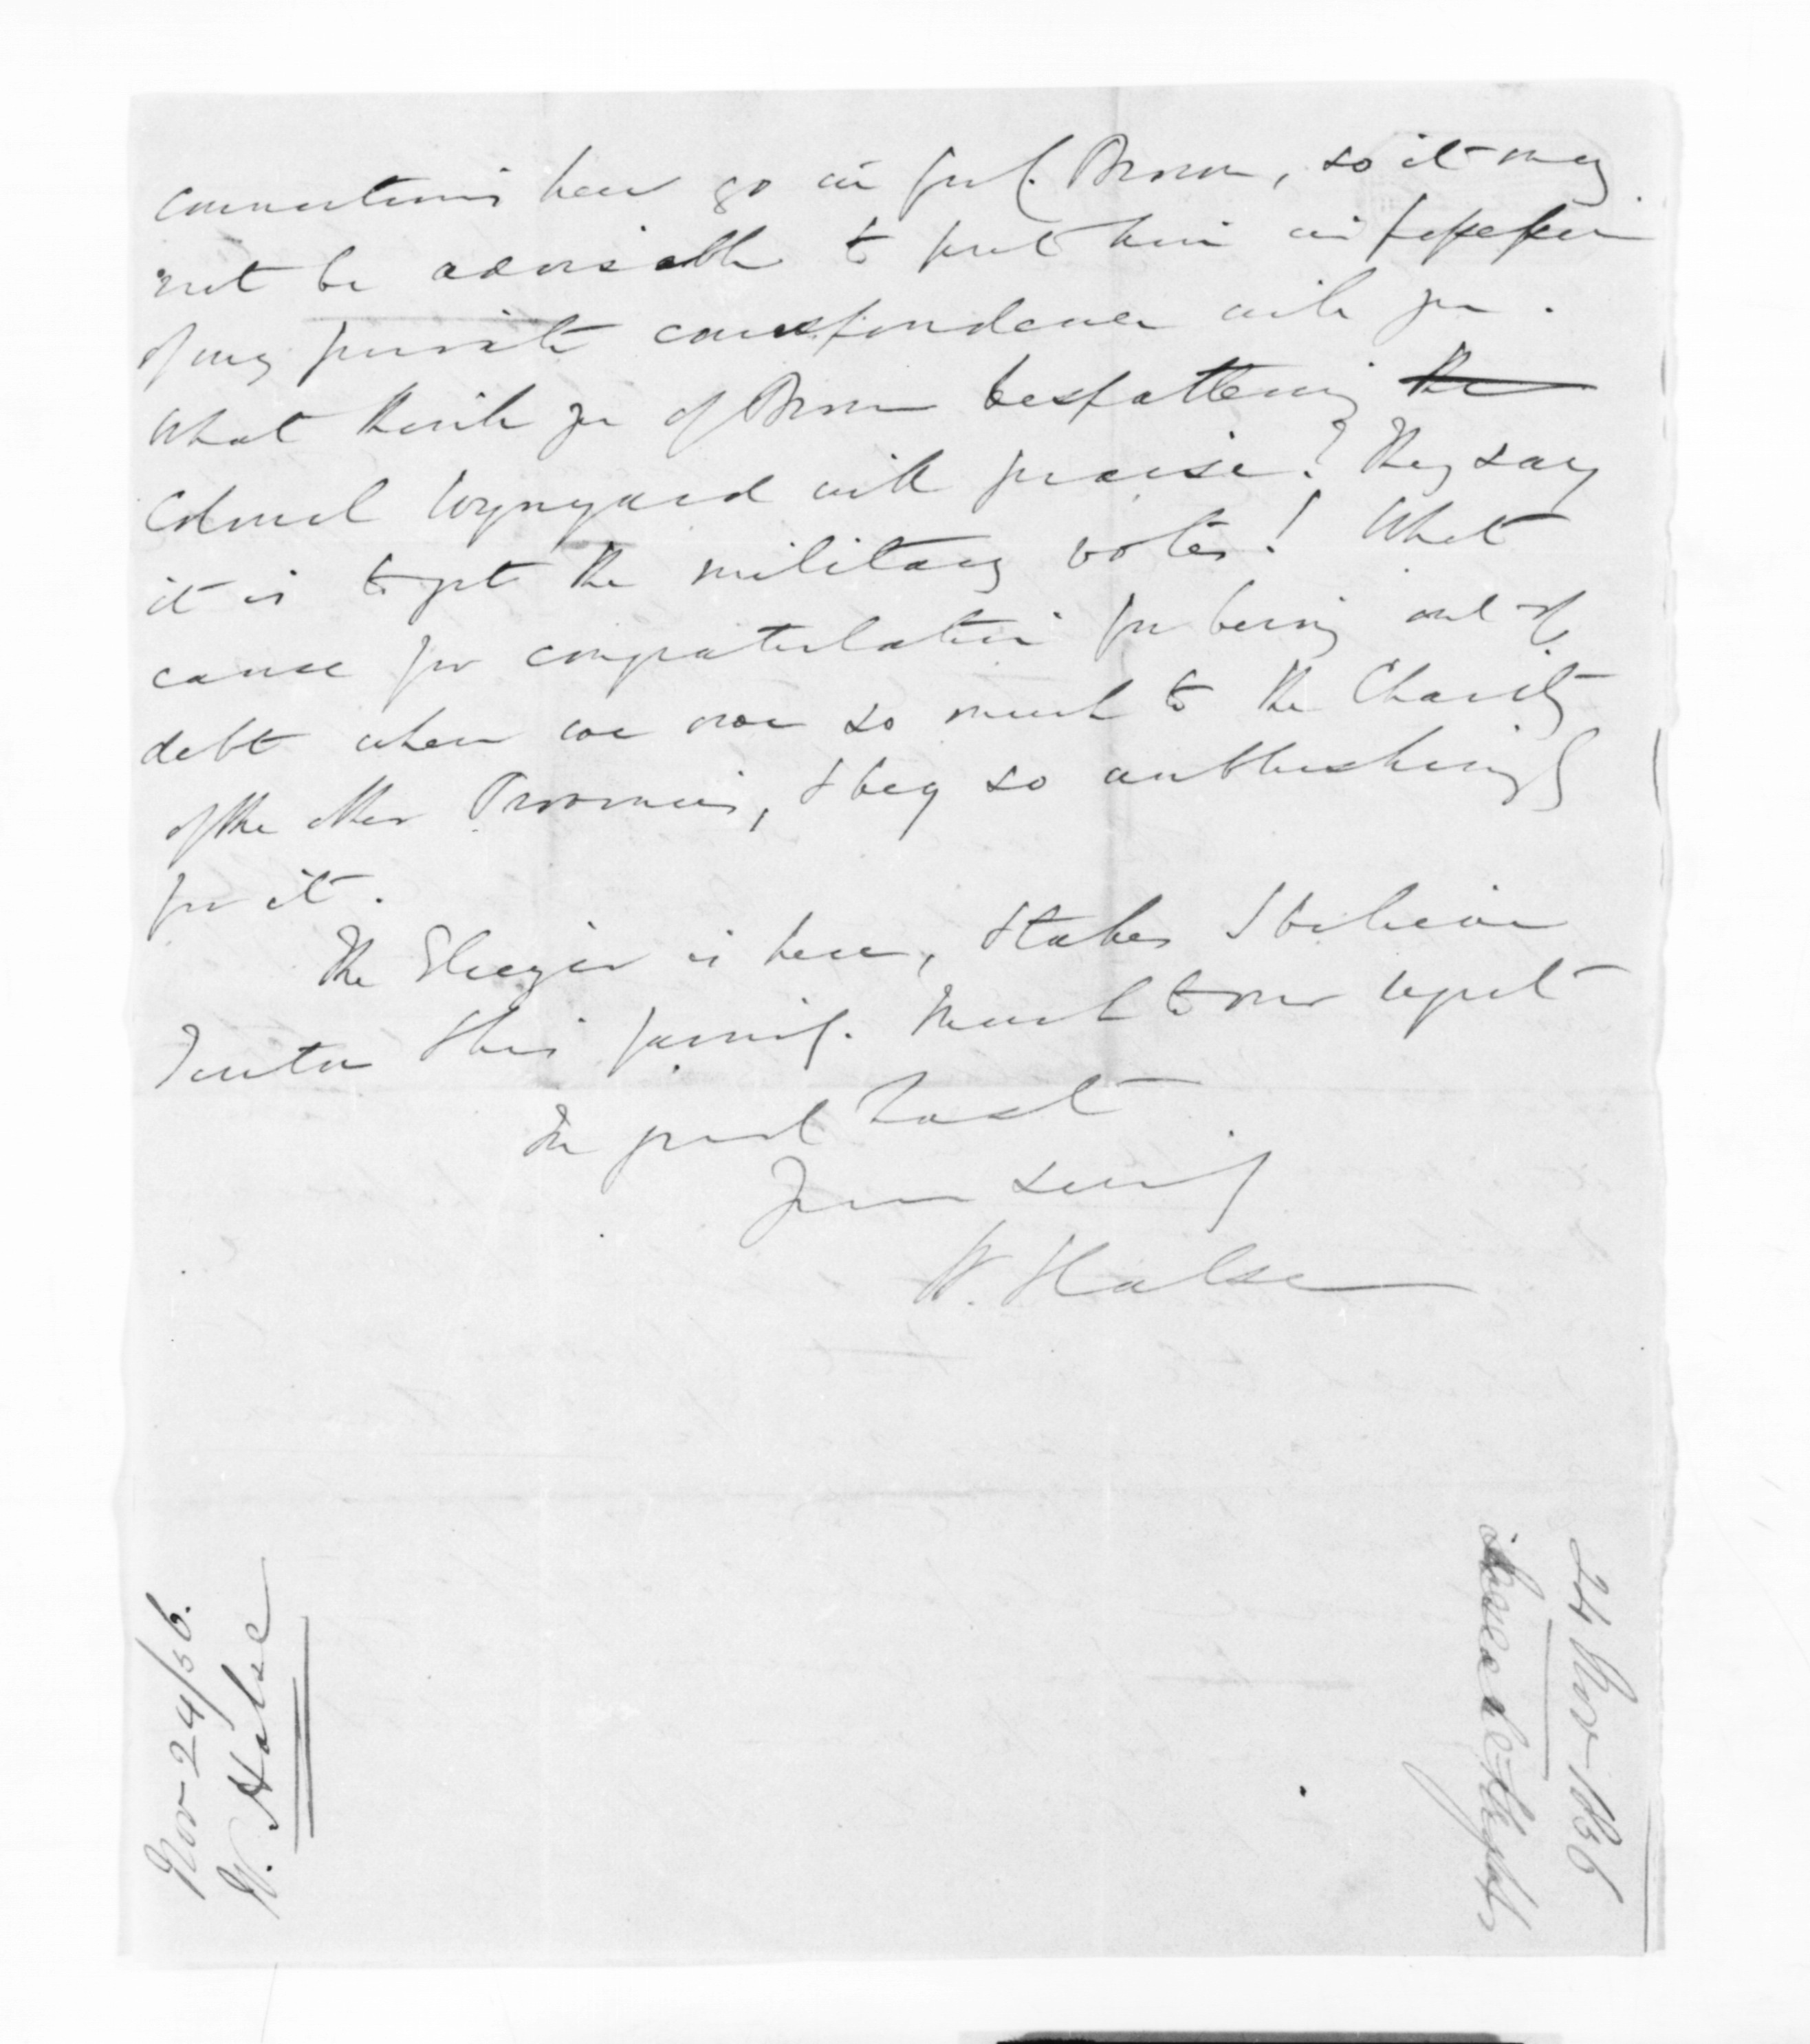 connections here go in for C. Brown, so it may
not be advisable to put him in possession
of my private correspondence with you.
What think you of Brown bespattering the
Colonel Wynyard with praise? They say
it is to get the military votes! What
cause for congratulation for being out of
debt when we owe so much to the Charity
of the other Provinces, & beg so unblushingly
for it.
The is here, & takes I believe
& his family. Much to our regret
In great haste
Yours sincly
W. Halse
Nov 24/56.
W. Halse
24 Nov 1856